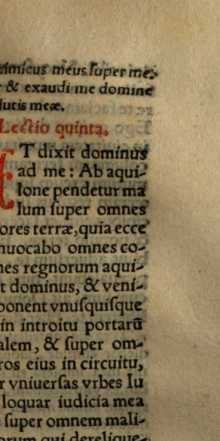 inimicus meus super me:
r & exaudi me domine
lutis meæ.
Lectio quinta.
ET dixit dominus
ad me: Ab aqui-
lone pendetur ma
lum super omnes
ores terræ, quia ecce
nuocabo omnes co-
nes regnorum aqui-
t dominus, & veni-
ponent vnusquisque
in introitu portarũ
alem, & super om-
ros eius in circuitu,
r vniuersas vrbes Iu
loquar iudicia mea
super omnem mali-
orum qui derelique-